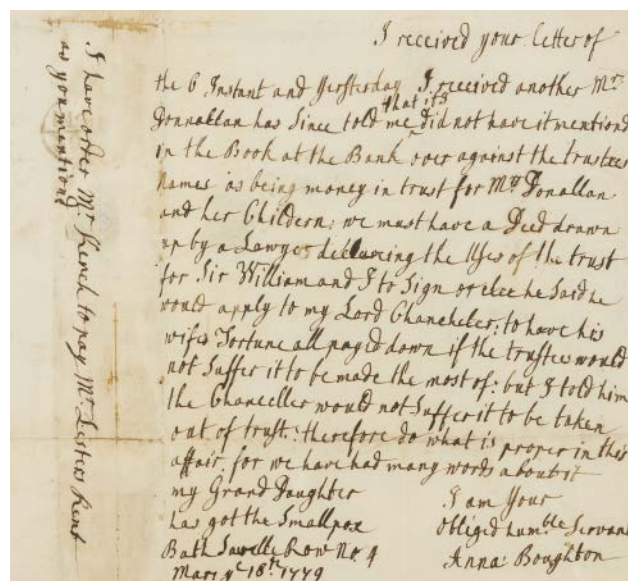 I received your Letter of
the 6 Instant and yersterday I received another Mrs
Donnallan has Since told me that its did not have it mentiond
in the Book at the Bank over against the trustees
names as being money in trust for Mrs Donallan
and her Childern: we must have a Deed drawn
up by a Lawyer declaring the Uses of the trust
for Sir William and I to Sign or elce he Said he
would apply to my Lord Chancheler: to have his
wifes Fortune all payed down if the trustees would
not Suffer it to be made the most of: but I told him
the Chanceller would not Suffer it to be taken
out of trust: therefore do what is proper in this
affair, for we have had many words about it
my Grand Daughter
has got the Smallpox
Bath Savelle Row No. 4
Mar ye 18th 1779
I am Your
Obliged humble Servant
Anna: Boughton
I have order Mr Kench to pay Mr Listers Rent
as you mentiond